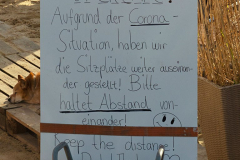 Aufgrund der Corona-
Situation, haben wir
die Sitzplätze weiter auseinan-
der gestellt! Bitte
haltet Abstand von-
einander!
Keep the distance!